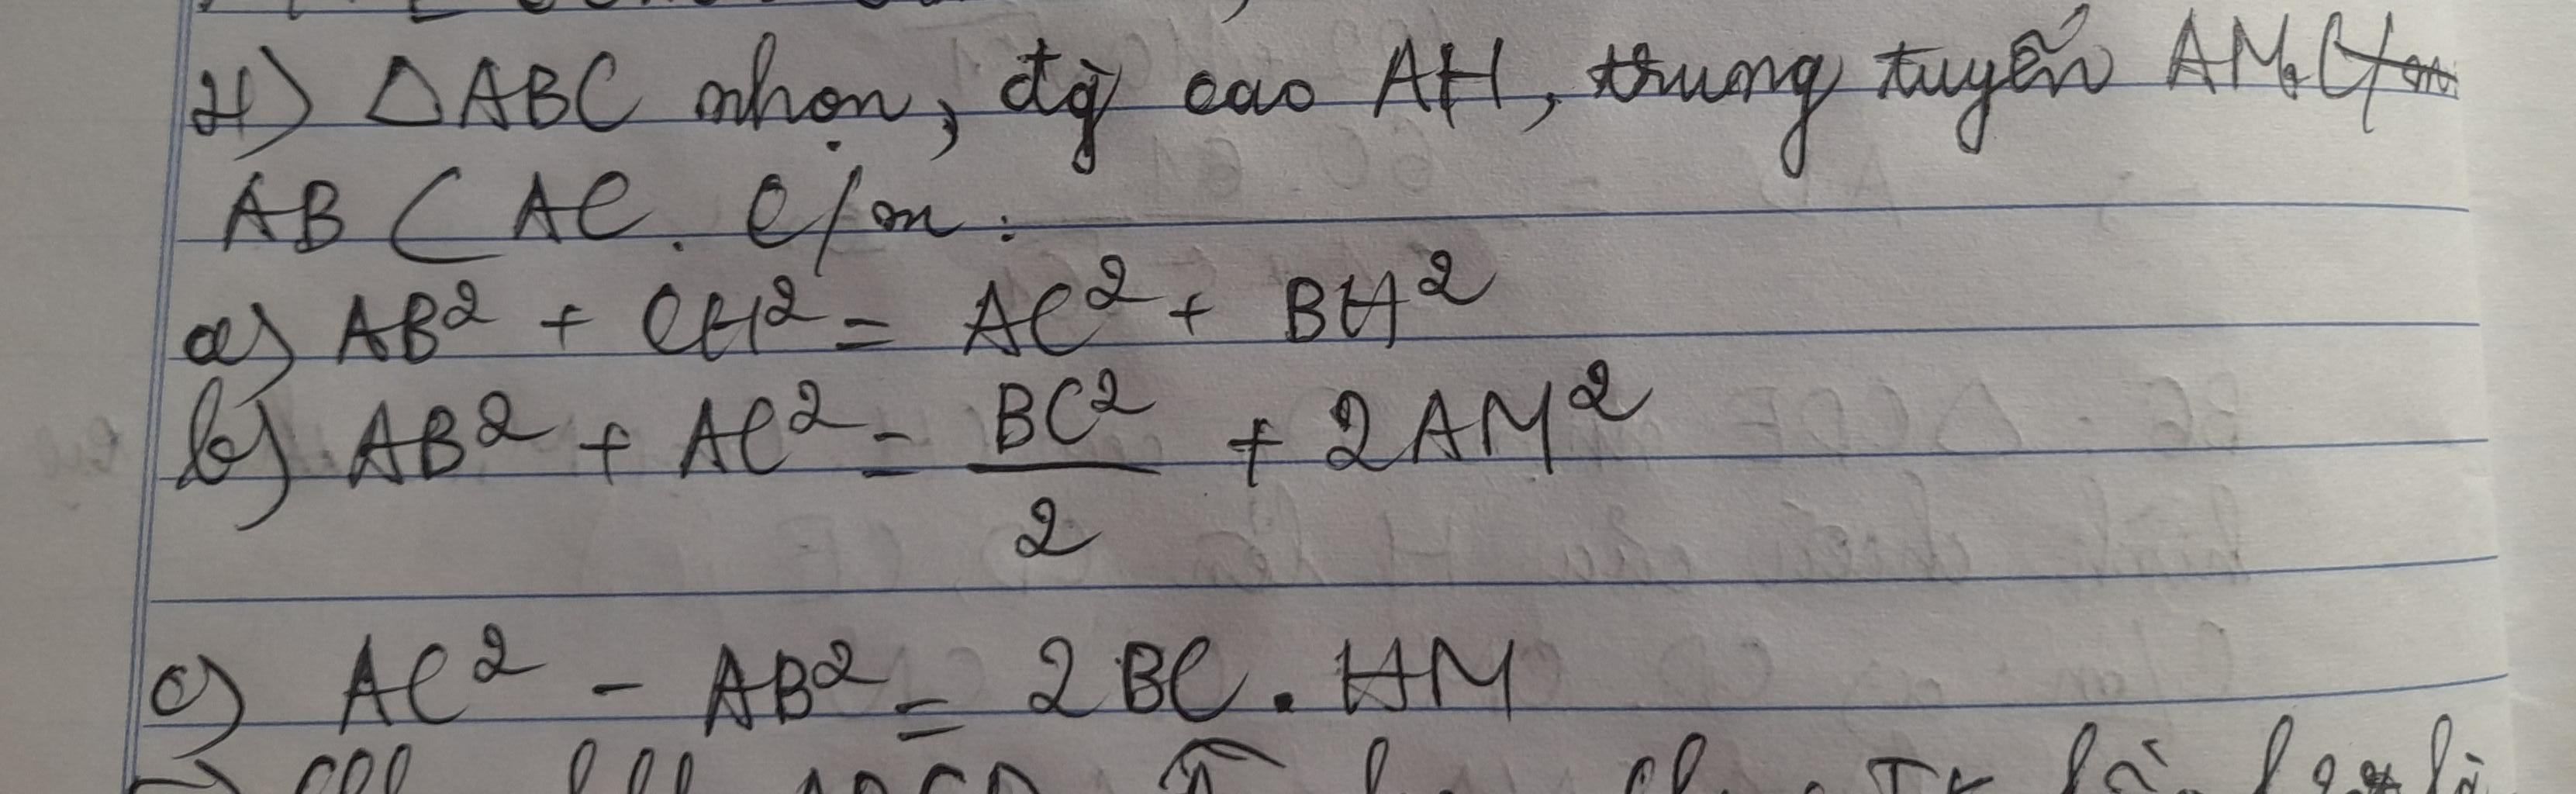 4) △ABC nhọn, đg̀ cao AH, trung tuyến AM. C/m
AB < AC. C/m:
a) AB² + CH² = AC² + BH²
b) AB² + AC² = BC²/2 + 2AM²
c) AC² - AB² = 2BC . HM